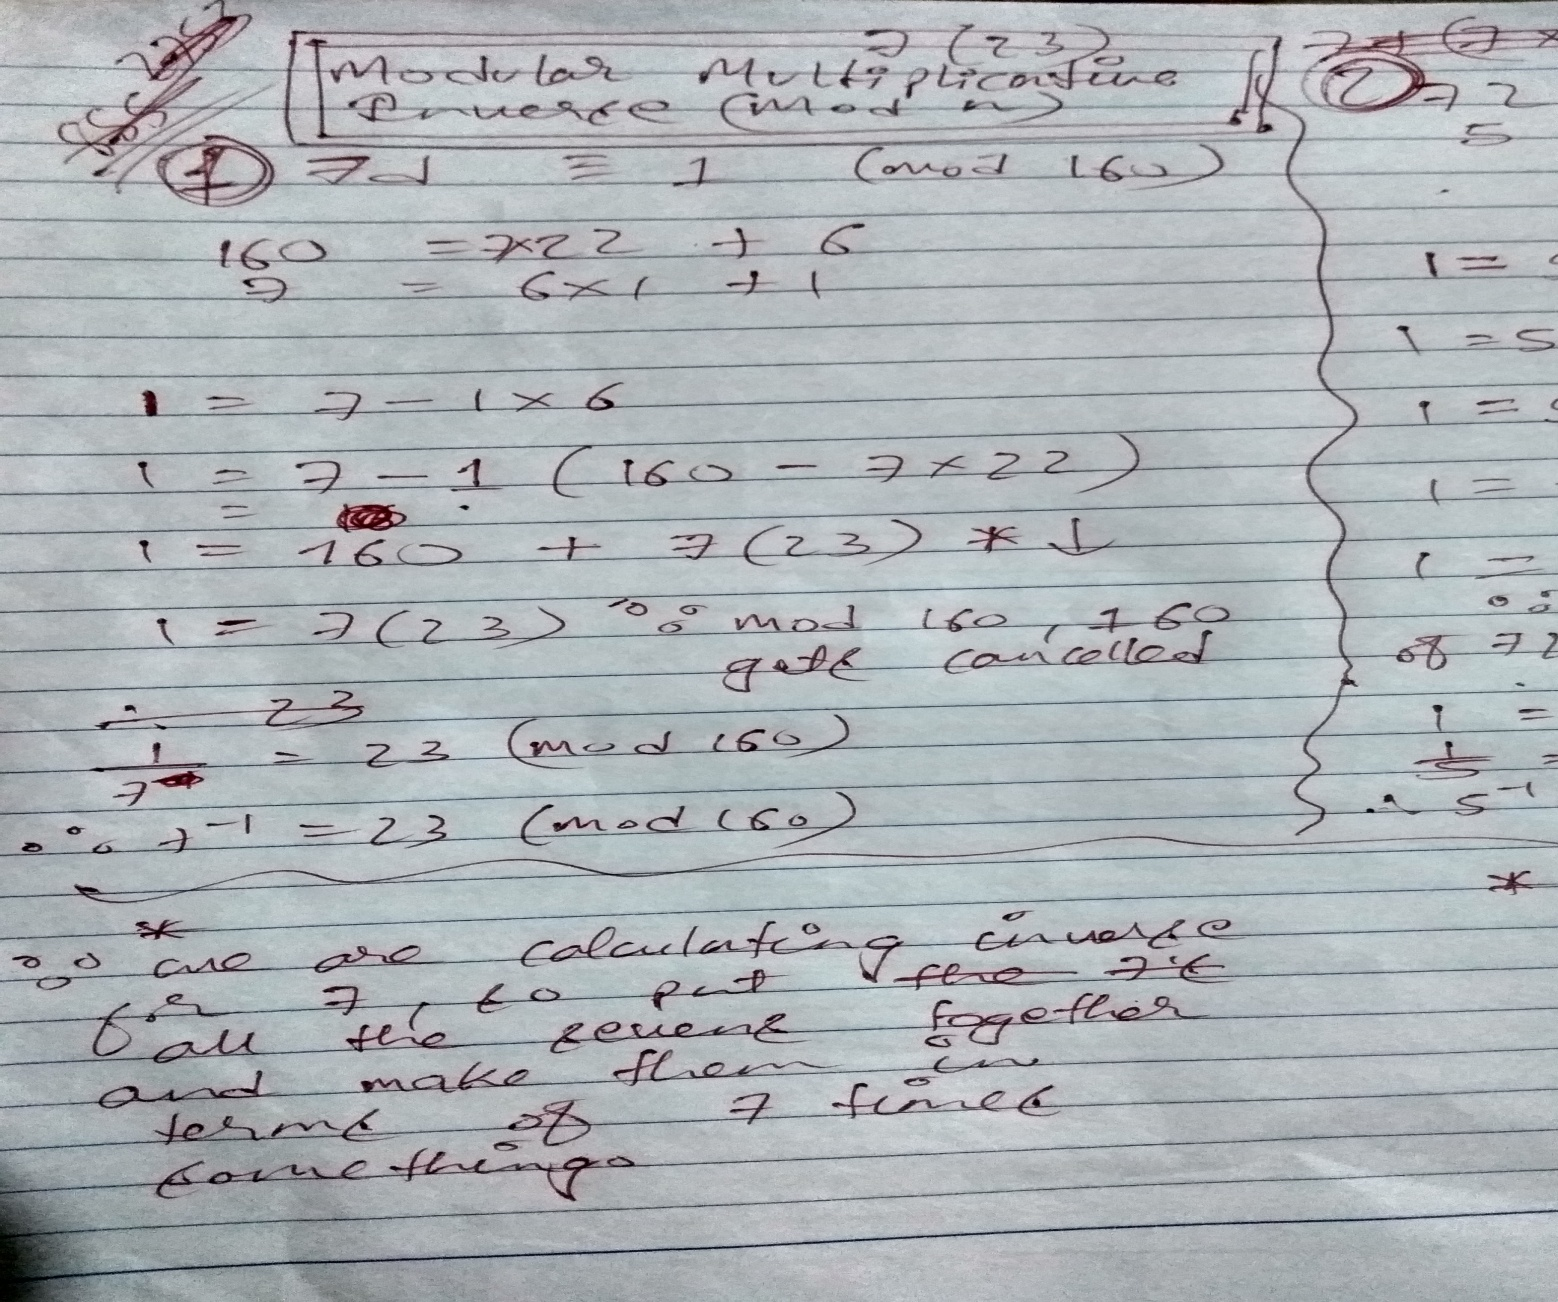 7 (23)
Modular Multiplicative
Inverse (mod n)
1 7d ≡ 1 (mod 160)
160 = 7×22 + 6
7 = 6×1 + 1
1 = 7 - 1 × 6
1 = 7 - 1 (160 - 7×22)
=
1 = 160 + 7 (23) * ↓
1 = 7 (23) ∵ mod 160, 160
gets cancelled
∴ 23
1/7 = 23 (mod 160)
∴ 7⁻¹ = 23 (mod 160)
*
∵ we are calculating inverse
for 7, to put the 7's
all the sevens together
and make them in
terms of 7 times
something.
2 72
5
1 =
1 = 5
1 =
1 =
1 =
of 72
1 =
1/5 =
∴ 5⁻¹
*